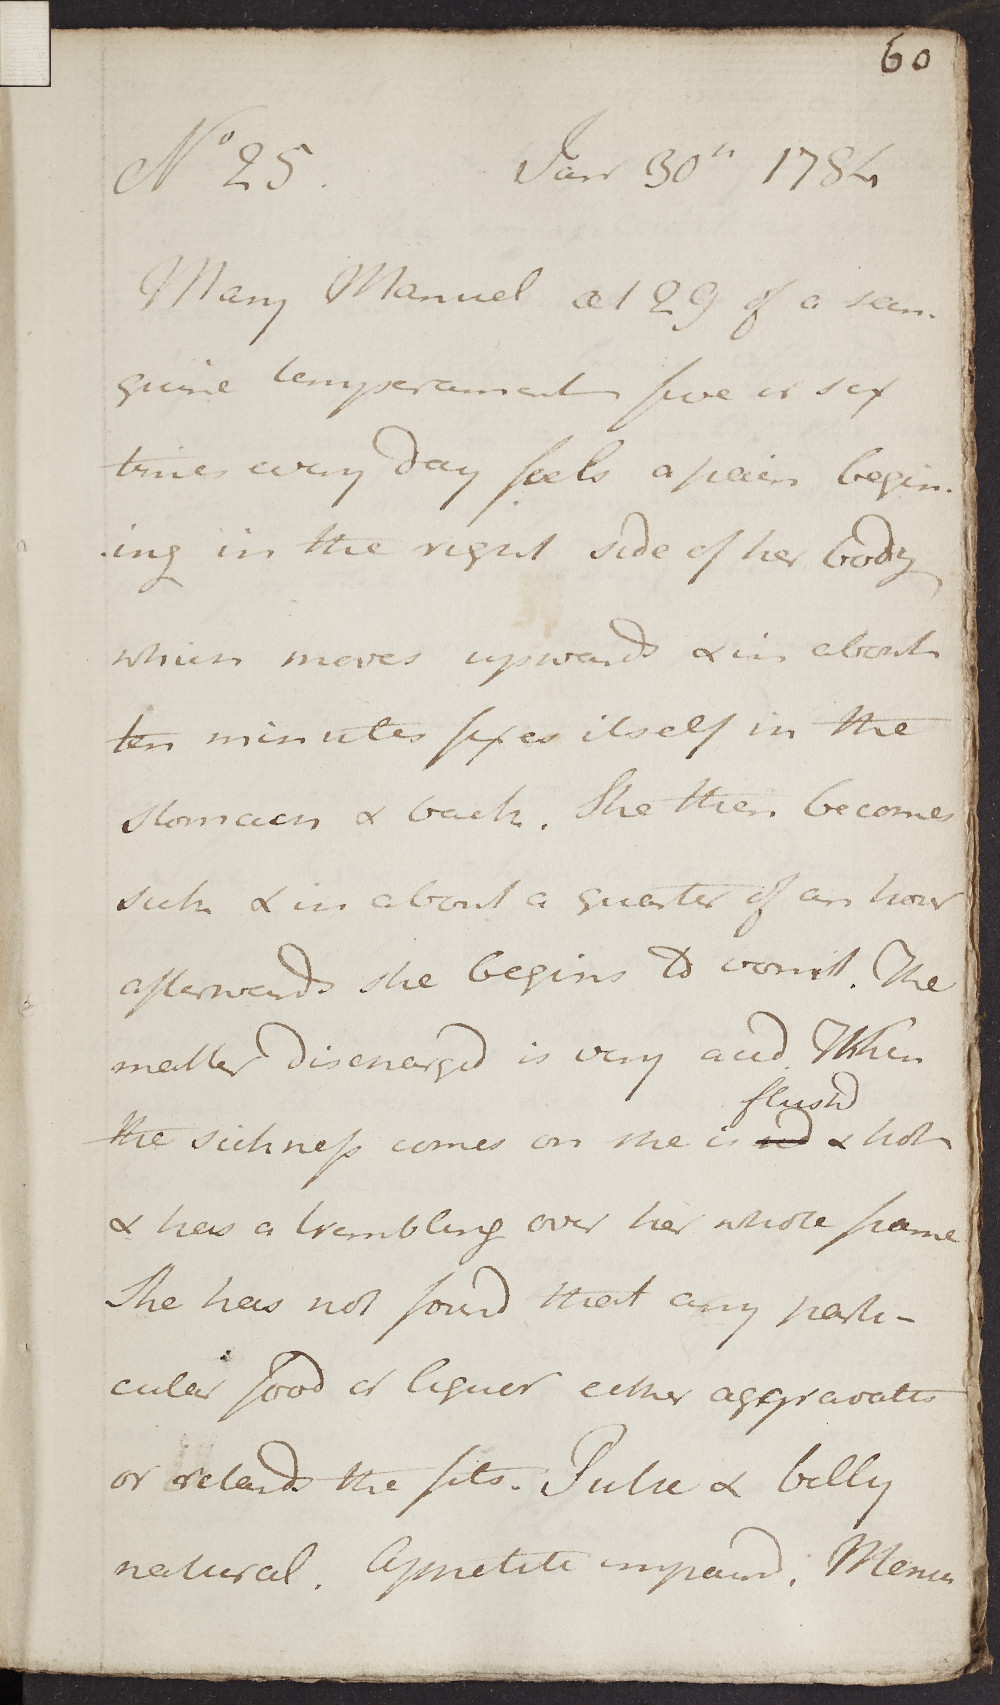 60
No 25. Jan 30th 1784
Mary Manuel æt 29 of a san-
guine temperament five or six
times every day feels a pain begin-
-ing in the right side of her body
which moves upwards & in about
ten minutes fixes itself in the
stomach & back. She then becomes
sick & in about a quarter of an hour
afterwards she begins to vomit. The
matter discharged is very acid. When
flushd
the sickness comes on she is red & hot
& has a trembling over her whole frame
She has not found that any parti-
cular food or liquor either aggravates
or retards the fits. Pulse & belly
natural. Appetite impaird. Menses